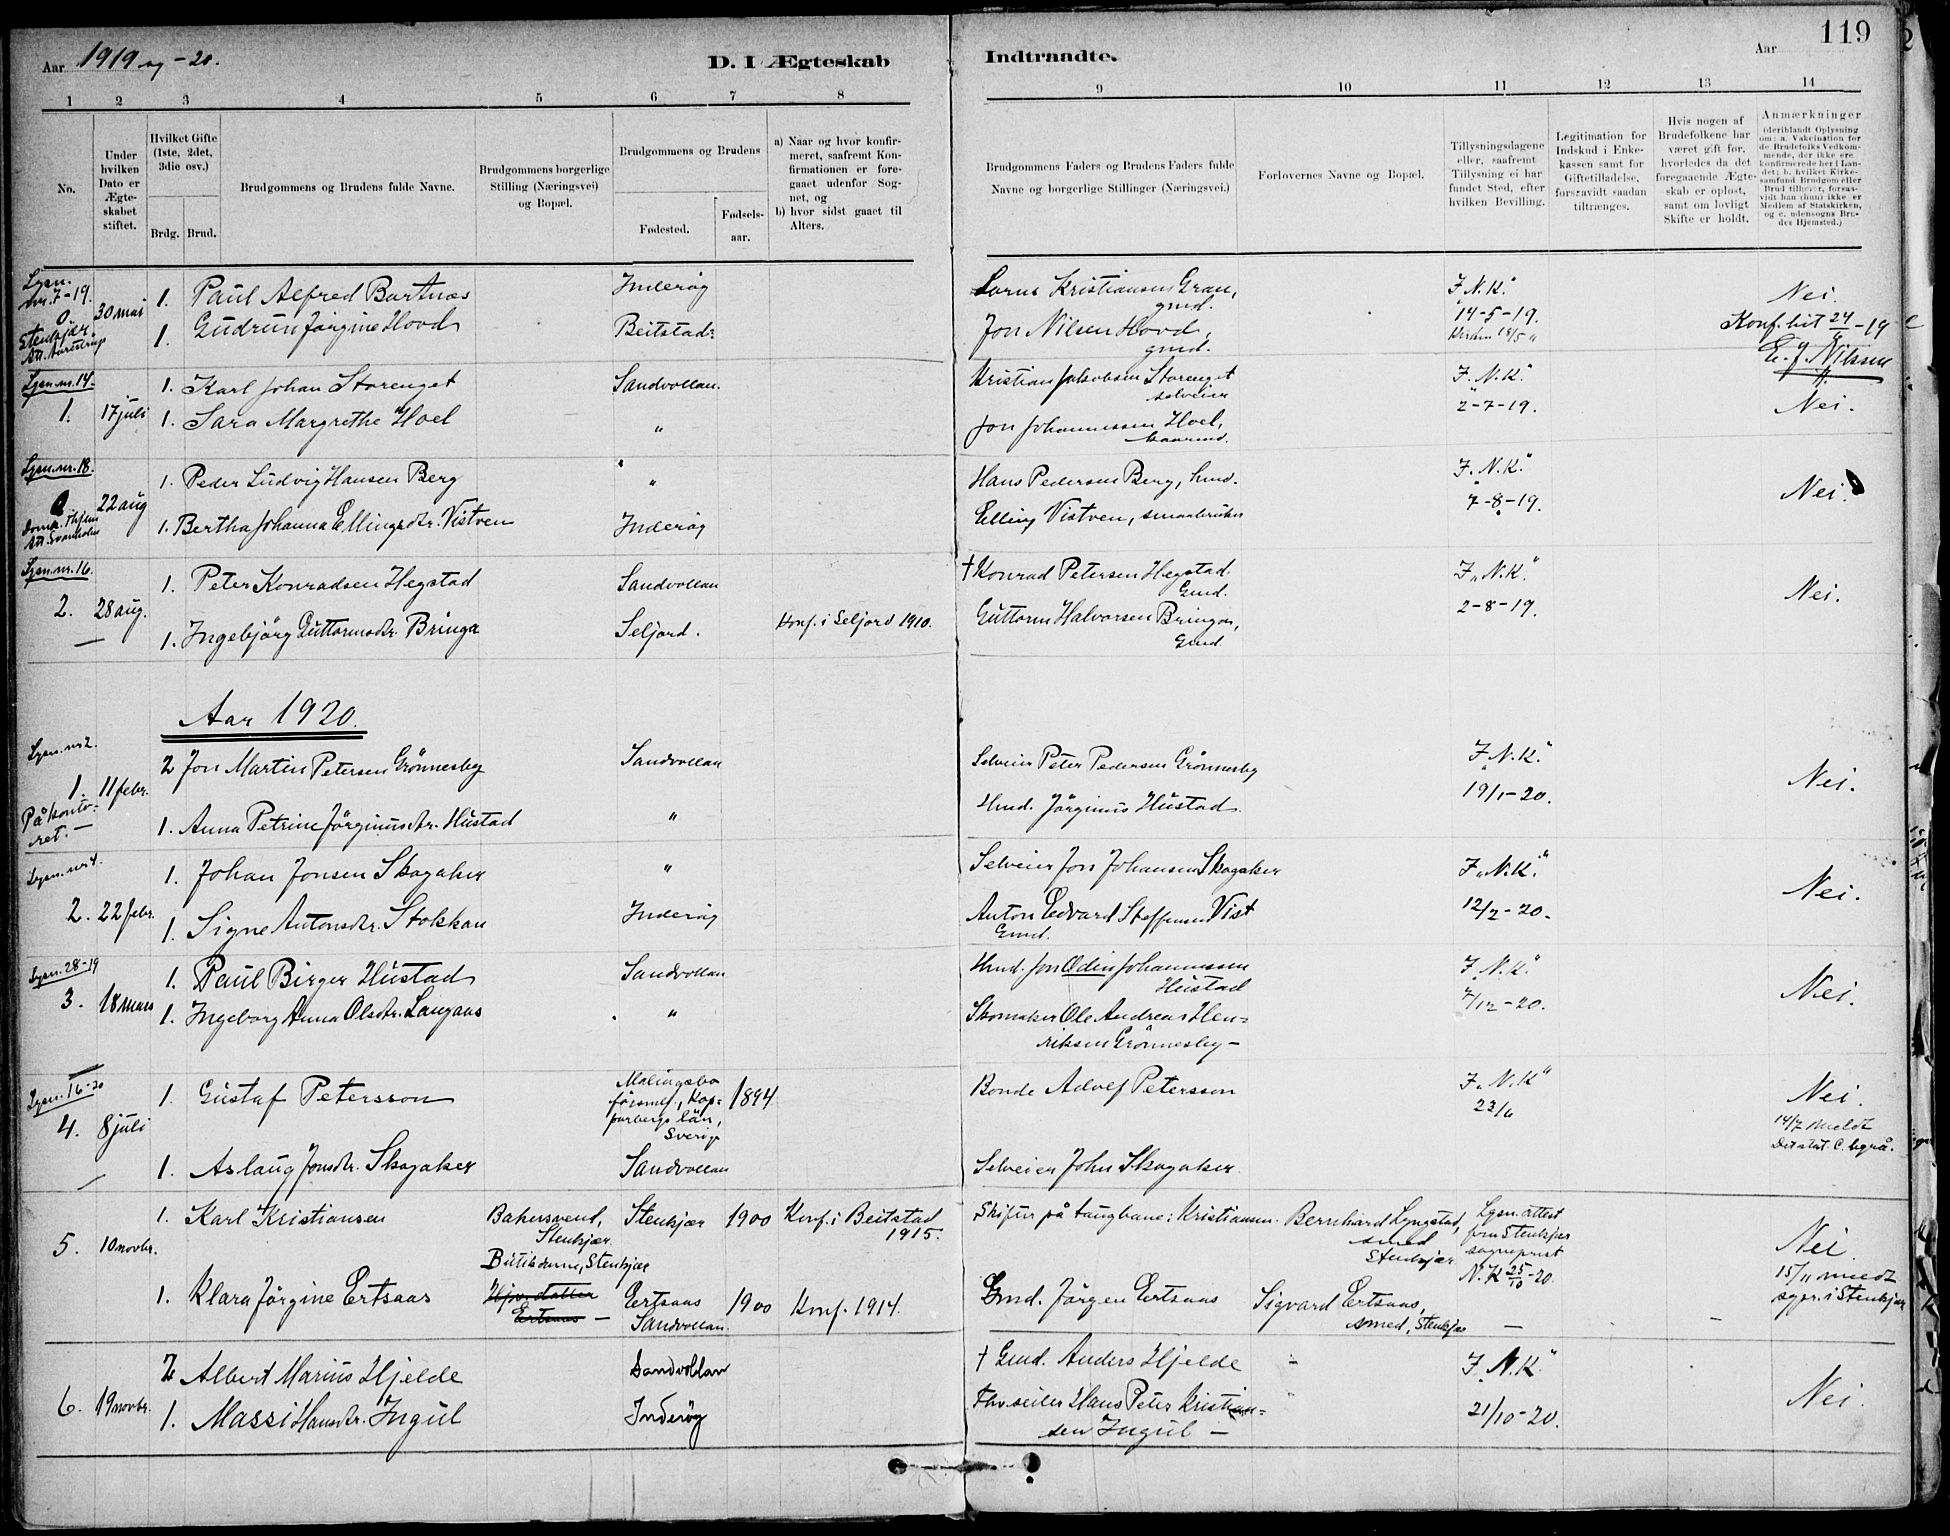 Aar 1919 og -20.
D. I Ægteskab
Indtraadte.
Aar
119
1 2 3 4 5 6 7 8
9 10 11 12 13 14
No.
Under hvilken Dato er Ægteskabet stiftet.
Hvilket Gifte (1ste, 2det, 3die osv.)
Brdg. Brud.
Brudgommens og Brudens fulde Navne.
Brudgommens borgerlige Stilling (Næringsvei) og Bopæl.
Brudgommens og Brudens
Fødested.
Fødsels-aar.
a) Naar og hvor konfirmeret, saafremt Konfirmationen er foregaaet udenfor Sognet, og
b) hvor sidst gaaet til Alters.
Brudgommens Faders og Brudens Faders fulde Navne og borgerlige Stillinger (Næringsvei.)
Forlovernes Navne og Bopæl.
Tillysningsdagene eller, saafremt Tillysning ei har fundet Sted, efter hvilken Bevilling.
Legitimation for Indskud i Enkekassen samt for Giftetilladelse, forsaavidt saadan tiltrænges.
Hvis nogen af Brudefolkene har været gift før, hvorledes da det foregaaende Ægteskab er opløst, samt om lovligt Skifte er holdt.
Anmærkninger
(deriblandt Oplysning om: a. Vakcination for de Brudefolks Vedkommende, der ikke ere konfirmerede her i Landet; b. hvilket Kirkesamfund Brudgom eller Brud tilhører, forsaavidt han (hun) ikke er Medlem af Statskirken, og c. udensogns Brudes Hjemsted.)
Lysn. nr. 7-19.
0. 30 mai
Stenkjær.
1. Paul Alfred Bartnes Inderøy
1. Gudrun Jørgine Hovd Beitstad
Kristiansen Gran, gmd.
Jon Nilsen Hovd, gmd.
F. N. K.
14-5-19.
Nei.
Konf. hit 24/ -19
E. J. Nilssen
Lysn. nr. 14.
1. 17 juli
1. Karl Johan Storenget Sandvollan.
1. Sara Margrethe Hoel "
Kristian Jakobsen Storenget selveier
Jon Johannessen Hoel,
F. N. K.
2-7-19.
Nei.
Lysn. nr. 18.
22 aug
1. Peder Ludvig Hansen Berg "
1. Bertha Johanna Ellingsdtr. Vistven Inderøy
Hans Pedersen Berg, hmd.
Elling Vistven, smaabruker
F. N. K.
7-8-19.
Nei.
Lysn. nr. 16.
2. 28 aug.
1. Peter Konradsen Hegstad Sandvollan
1. Ingebjörg Guttormsdtr. Bringa Seljord. Konf. i Seljord 1910.
† Konrad Petersen Hegstad Gmd.
Guttorm Halvorsen Bringa, Gmd.
F. N. K.
2-8-19.
Nei.
Aar 1920.
Lysn. nr 2.
1. 11 febr.
På kontoret.
2 Jon Martin Petersen Grönnesby Sandvollan
1. Anna Petrine Jörginusdtr. Hustad "
Selveier Peter Pedersen Grönnesby
Hmd. Jörginus Hustad
F. N. K.
19/1-20.
Nei.
Lysn. nr 4.
2. 22 febr.
1. Johan Jonsen Skogaker "
1. Signe Antonsdtr. Stokkan Inderøy
Selveier Jon Johansen Skogaker
Anton Edvard Steffensen Vist
Gmd.
F. N. K.
12/2-20.
Nei.
Lysn. 28-19
3. 18 mars
1. Paul Birger Hustad Sandvollan
1. Ingeborg Anna Olsdtr. Langaas "
Hmd. Jon Odin Johannessen Hustad
Skomaker Ole Andreas Henriksen Grönnesby -
F. N. K.
7/12-20.
Nei.
Lysn. 16-20
4. 8 juli
1. Gustaf Petersson Malingsbo församl., Kopparbergs län, Sverige 1894
1. Aslaug Jonsdtr. Skogaker Sandvollan
Bonde Adolf Petersson
Selveier John Skogaker.
F. N. K
23/6
Nei.
14/7 meldt
Det stat. C. byrå.
5. 10 novbr.
1. Karl Kristiansen Bakersvend, Stenkjær. Stenkjær 1900 Konf. i Beitstad 1915.
Butikdame, Stenkjær
1. Klara Jörgine Ertsaas Ertsaas - Ertsaas Sandvollan. 1900 Konf. 1914.
på taugbane: Kristiansen. Bernhard Lyngstad, smed Stenkjær
Lysn. attest fra Stenkjær sogneprest
N. K 25/10-20.
Gmd. Jörgen Ertsaas Sigvard Ertsaas, smed, Stenkjær -
Nei.
15/11 meldt
sogpr. i Stenkjær
6. 19 novbr.
2 Albert Marius Hjelde Sandvollan
1. Massi Hansdtr. Ingul Inderøy
† Gmd. Anders Hjelde "
Hans Peter Kristiansen Ingul -
F. N. K.
21/10-20.
Nei.